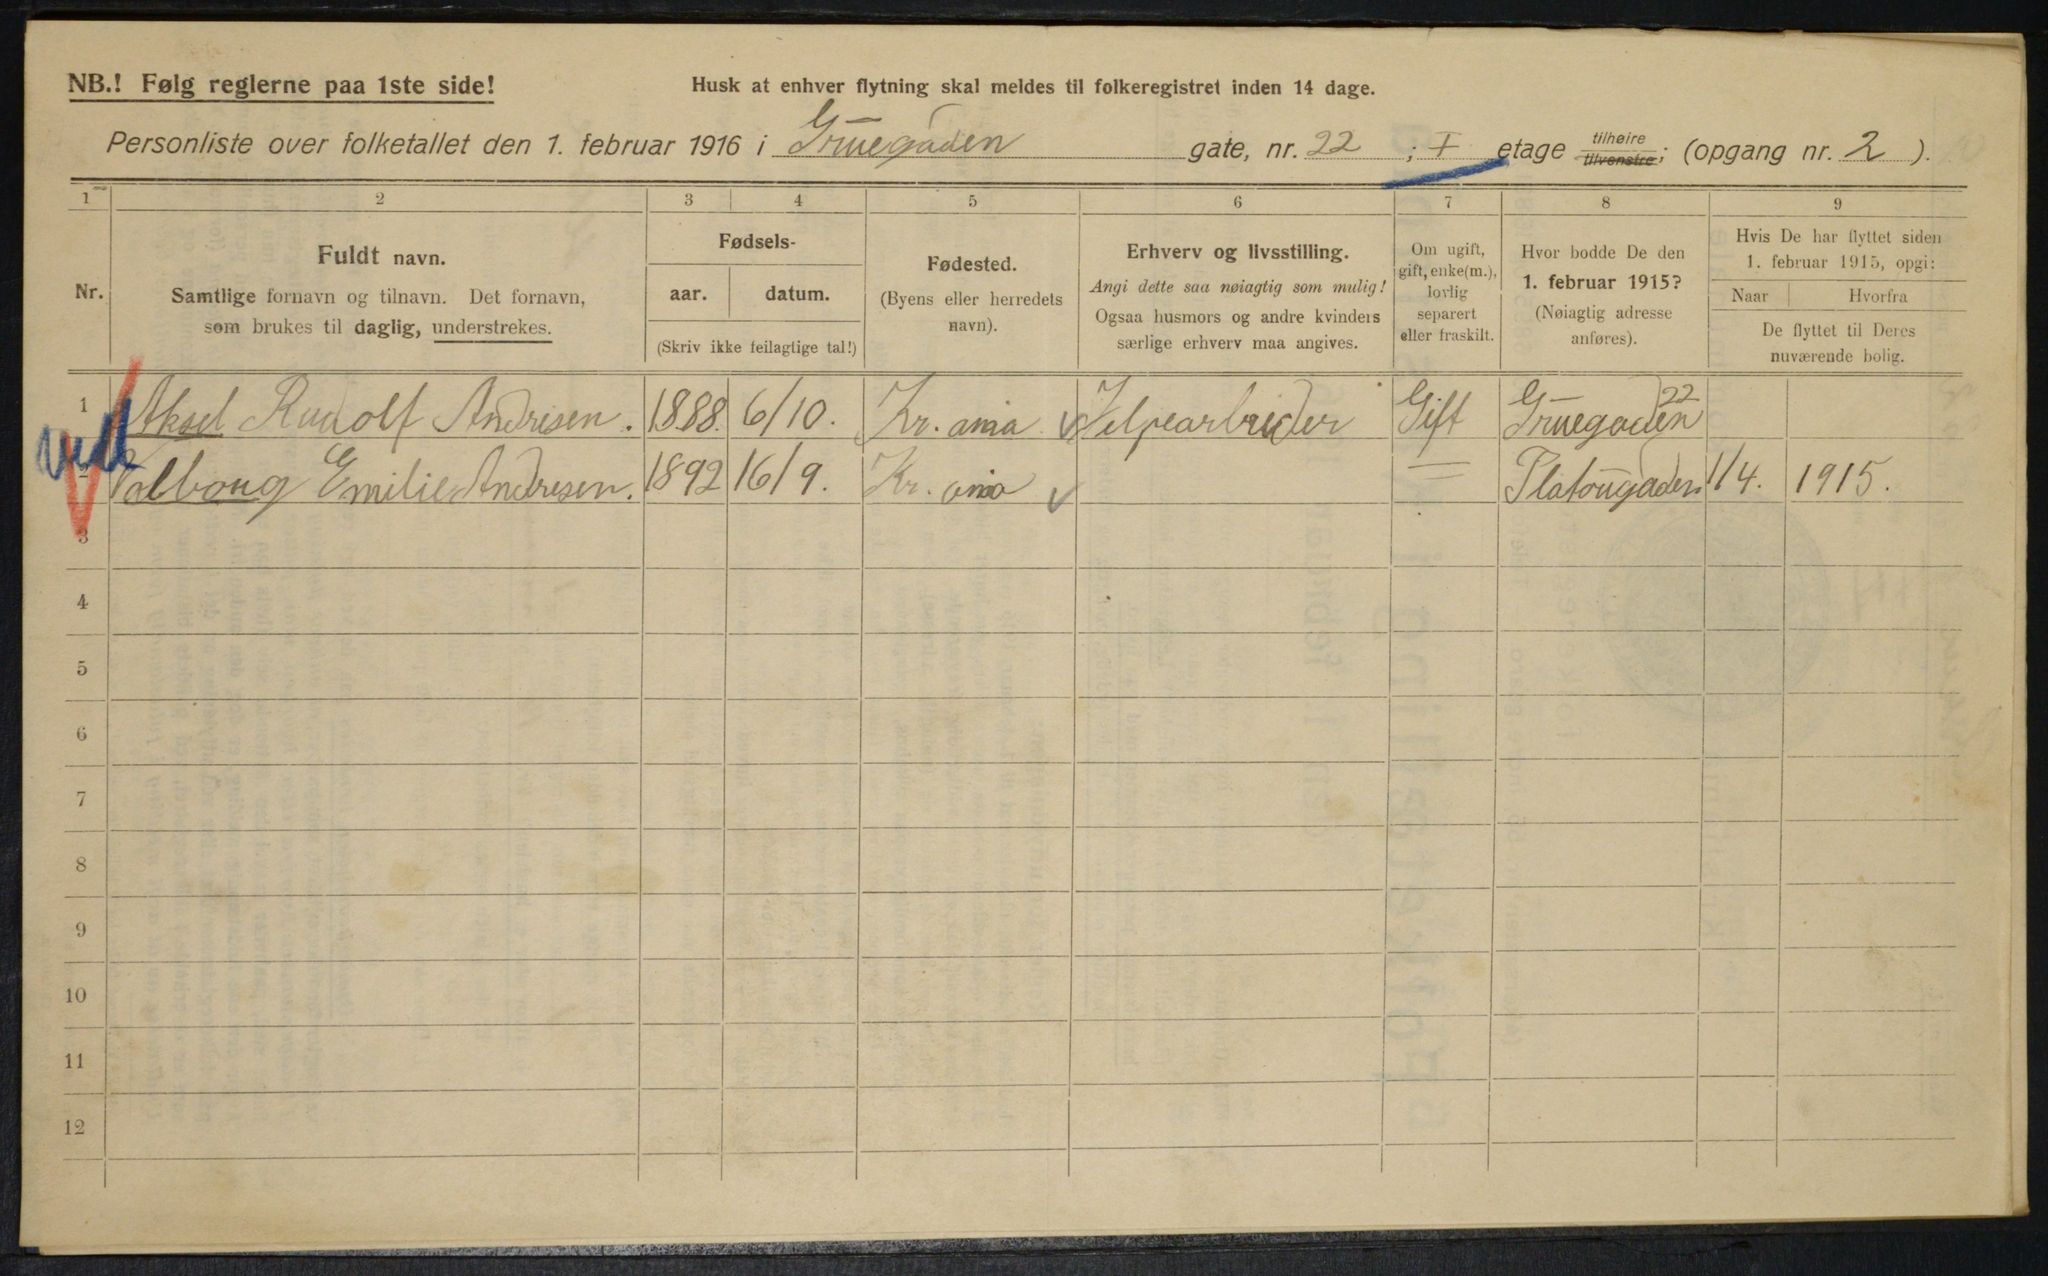 NB.! Følg reglerne paa 1ste side!
Husk at enhver flytning skal meldes til folkeregistret inden 14 dage.
Personliste over folketallet den 1. februar 1916 i Gruegaden gate, nr. 22 ; I etage tilhøire tilvenstre; (opgang nr. 2 ).
1 2 3 4 5 6 7 8 9
Nr.
Fuldt navn.
Samtlige fornavn og tilnavn. Det fornavn,
som brukes til daglig, understrekes.
Fødsels-
aar. datum.
(Skriv ikke feilagtige tal!)
Fødested.
(Byens eller herredets
navn).
Erhverv og livsstilling.
Angi dette saa nøiagtig som mulig!
Ogsaa husmors og andre kvinders
særlige erhverv maa angives.
Om ugift,
gift, enke(m.),
lovlig
separert
eller fraskilt.
Hvor bodde De den
1. februar 1915?
(Nøiagtig adresse
anføres).
Hvis De har flyttet siden
1. februar 1915, opgi:
Naar Hvorfra
De flyttet til Deres
nuværende bolig.
1 Aksel Rudolf Andresen. 1888. 6/10. Kr. ania Jelpearbeider Gift Gruegaden 22
2 Valborg Emilie Andresen. 1892 16/9. Kr. ania — Platougaden 1/4. 1915.
3
4
5
6
7
8
9
10
11
12